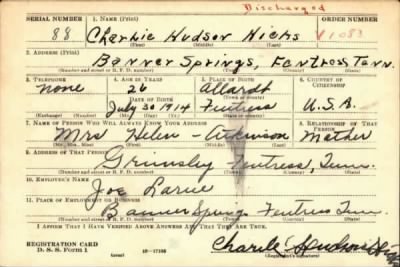 Discharged
SERIAL NUMBER 1. NAME (Print) ORDER NUMBER
88 Charlie Hudson Hicks V1083
(First) (Middle) (Last)
2. ADDRESS (Print)
Banner Springs, Fentress, Tenn.
(Number and street or R. F. D. number) (Town) (County) (State)
3. TELEPHONE 4. AGE IN YEARS 5. PLACE OF BIRTH 6. COUNTRY OF CITIZENSHIP
none 26 Allardt
DATE OF BIRTH (Town or county)
July 30 1914 Fentress U.S.A.
(Exchange) (Number) (Mo.) (Day) (Yr.) (State or country)
7. NAME OF PERSON WHO WILL ALWAYS KNOW YOUR ADDRESS 8. RELATIONSHIP OF THAT PERSON
Mrs Helen Atkinson Mother
(Mr., Mrs., Miss) (First) (Middle) (Last)
9. ADDRESS OF THAT PERSON
Grimsley Fentress, Tenn.
(Number and street or R. F. D. number) (Town) (County) (State)
10. EMPLOYER'S NAME
Joe
11. PLACE OF EMPLOYMENT OR BUSINESS
Banner Springs Fentress Tenn.
(Number and street or R. F. D. number) (Town) (County) (State)
I AFFIRM THAT I HAVE VERIFIED ABOVE ANSWERS AND THAT THEY ARE TRUE.
REGISTRATION CARD
D. S. S. Form 1 (over) 16—17105 Charlie Hudson Hicks
(Registrant's signature)